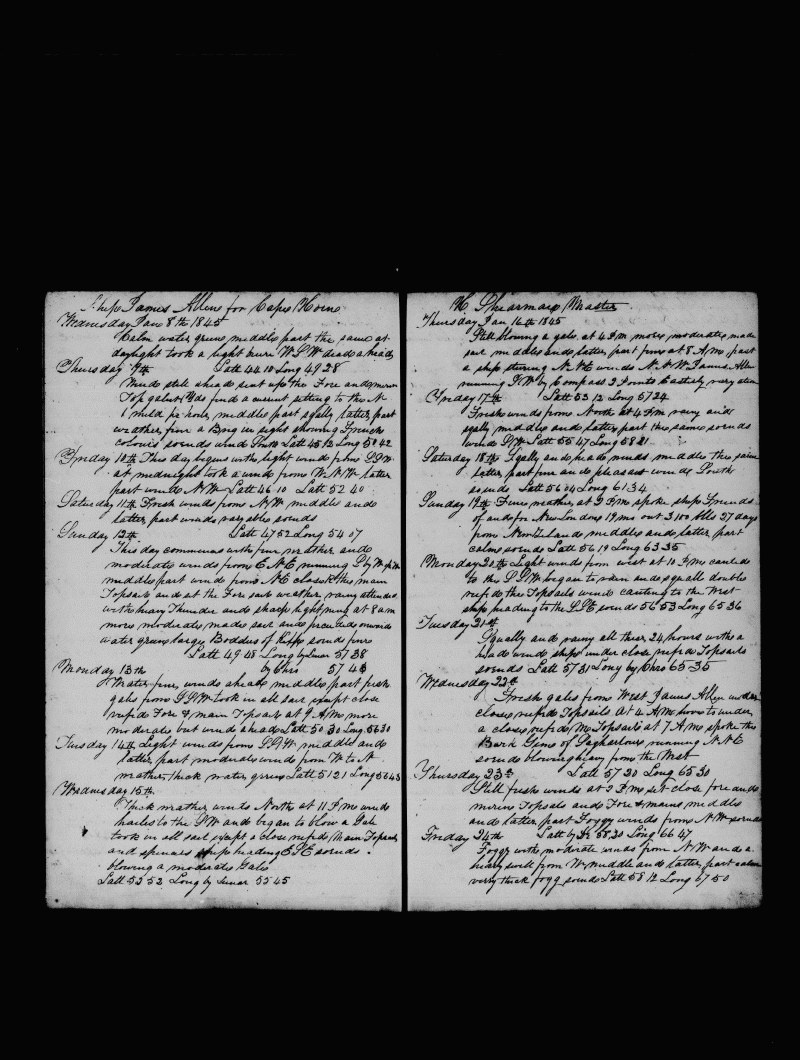 Ship James Allen for Cape Horn
Wednesday Jan 8th 1845
Calm water green middle part the same at
daylight took a light W S W dead ahead
Thursday 9th Latt 44 10 Long 49 28
Winds still ahead sent up the Fore and
Top galnt find a current setting to the N
1 mild middle part latter part
weather fine a Brig in sight showing French
colours so ends wind South Latt 45 12 Long 50 42
Friday 10th This day begins with light winds from S S W
at midnight took a wind from W N W latter
part wind N W Latt 46 10 Latt 52 40
Saturday 11th Fresh winds from N W middle and
latter part winds varyable so ends
Sunday 12th Latt 47 52 Long 54 07
This day commences with fine weather and
moderate winds from E N E running S by W
middle part wind from N E close the main
Topsail and set the Fore sail weather rainy attended
with heavy Thunder and sharp lightning at 8 am
more moderate made sail and proceeded onwards
water green large Boddies of so ends fine
Latt 49 45 Long by Lunar 57 38
Monday 13th by Chro 57 43
Water fine winds ahead middle part fresh
gales from S S W took in all sail exept close
reefd Fore & main Topsail at 9 A M more
moderate but wind ahead Latt 50 30 Long 56 30
Tuesday 14th Light winds from S S W middle and
latter part moderate winds from W to N
weather thick water green Latt 51 21 Long 56 43
Wednesday 15th
Thick weather winds North at 11 P M wind
hauled to the S W and began to blow a Gale
took in all sail exept a close reefd Main Topsail
and spencer ship heading E S E so ends
blowing a moderate Gale
Latt 53 52 Long by Lunar 55 45
W Shearman Master
Thursday Jan 16th 1845
Still blowing a gale at 4 P M more moderate made
sail middle and latter part fine at 8 A M past
a ship steering N N E winds N N W James Allen
running S W by Compass 2 Points Easterly
Friday 17th Latt 53 12 Long 57 24
Fresh winds from North at 4 P M rainy and
sqally middle and latter part the same so ends
wind S W Latt 55 47 Long 58 21
Saturday 18th Sqally and head winds middle the same
latter part fine and pleasant wind South
so ends Latt 56 04 Long 61 34
Sunday 19th Fine weather at 2 P M spoke ship Friends
of and for New London 19 ms out 3100 bbls 27 days
from New Zealand middle and latter part
calm so ends Latt 56 19 Long 63 35
Monday 20th Light winds from west at 10 P M canted
to the S S W began to rain and squall double
reefd the Topsails wind canting to the West
ship heading to the S S E so ends 56 53 Long 65 36
Tuesday 21st
Squally and rainy all these 24 hours with a
head wind ship under close reefd Topsails
so ends Latt 57 31 Long by Chro 65 35
Wednesday 22d
Fresh gales from West James Allen under
close reefd Topsails at 4 A M hove to under
a close reefd M Topsail at 7 A M spoke the
Bark Gem of Sagharbour running N N E
so ends blowing heavy from the West
Thursday 23d Latt 57 20 Long 65 30
Still fresh winds at 2 P M set close fore and
mizen Topsails and Fore & main middle
and latter part Foggy winds from N W so ends
Friday 24th Latt by 58 30 Long 66 47
Foggy with moderate winds from N W and a
heavy swell from W middle and latter part calm
very thick fogg so ends Latt 58 12 Long 67 50